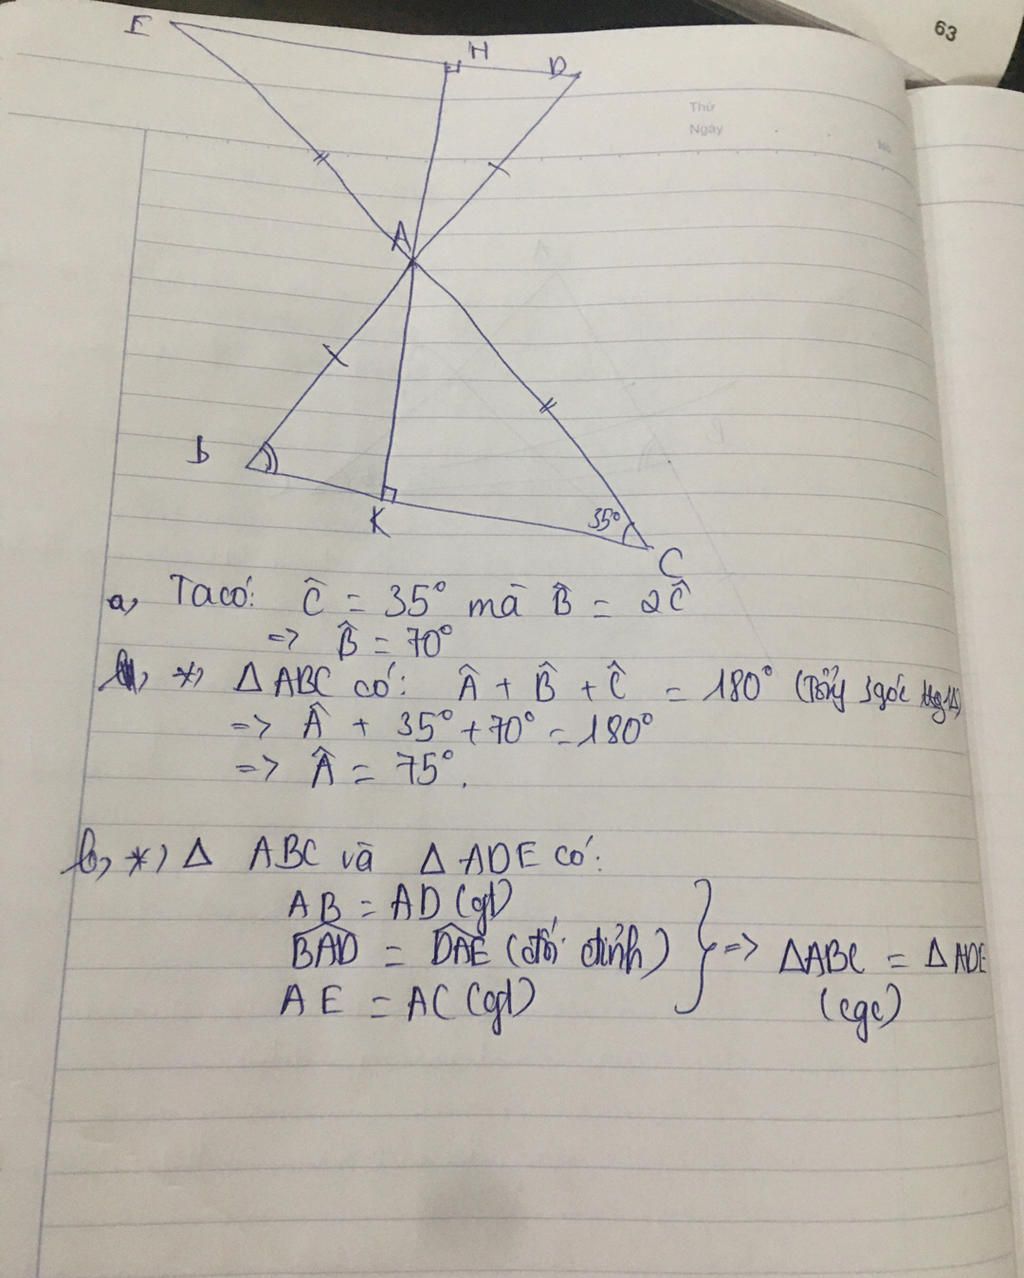 63
Thứ
Ngày
E
H
D
A
B
K
35°
C
a, Ta có: Ĉ = 35° mà B̂ = 2Ĉ
=> B̂ = 70°
*, Δ ABC có: Â + B̂ + Ĉ = 180° (Tổng 3 góc
=> Â + 35° + 70° = 180°
=> Â = 75°.
b, *, Δ ABC và Δ ADE có:
AB = AD (gt)
BAD = DAE (đối đỉnh) } => ΔABC = Δ ADE
AE = AC (gt)
(cgc)